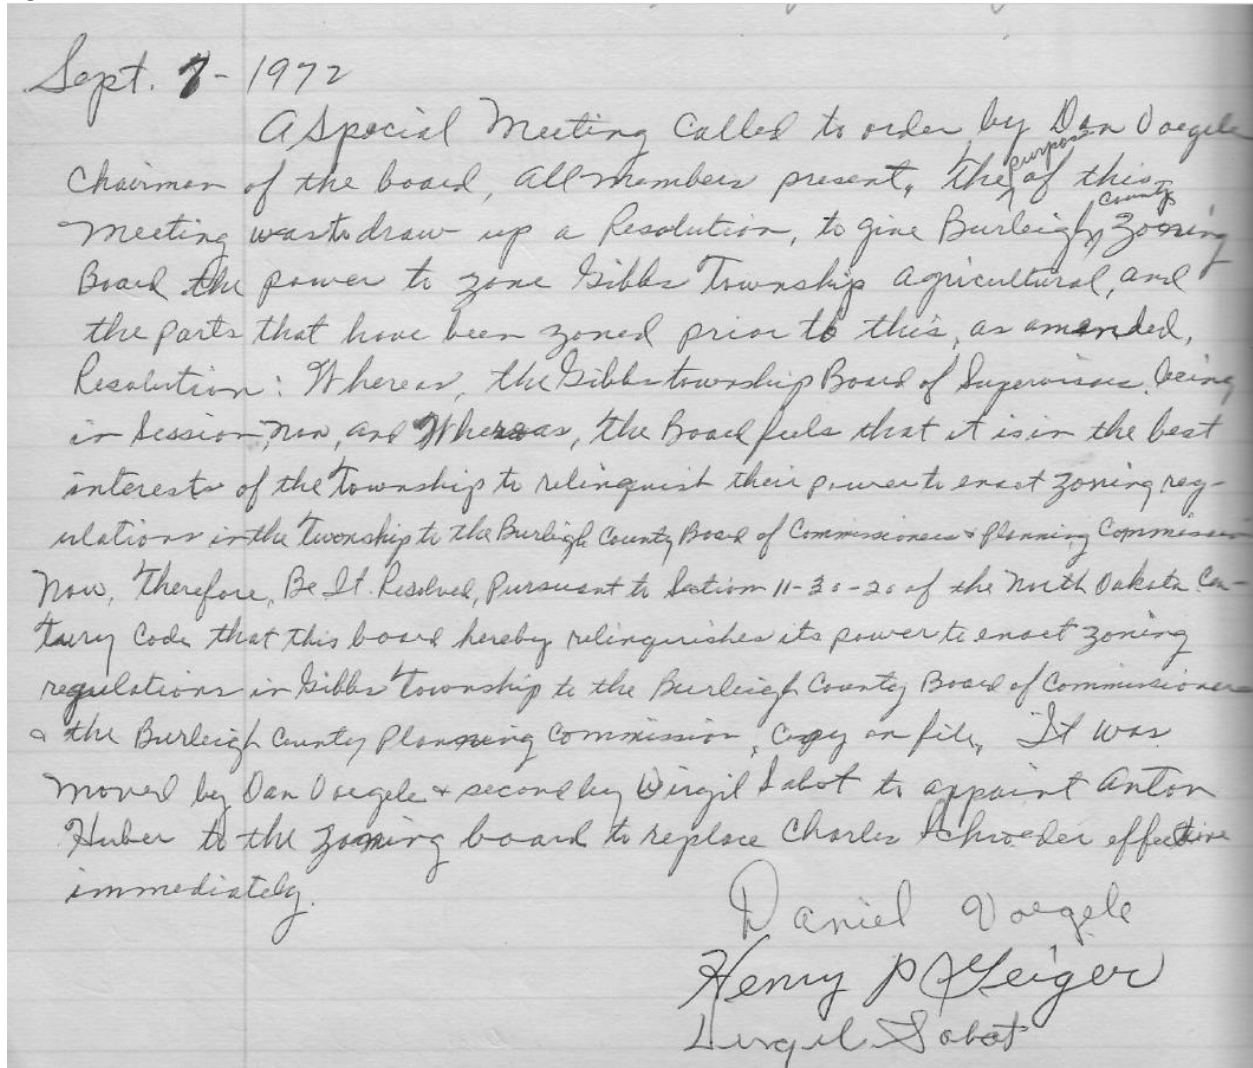 Sept. 7 - 1972
A Special Meeting Called to order by Dan Voegele
Chairman of the board, all members present, The purpose of this
meeting was to draw up a Resolution, to give Burleigh County Zoning
Board the power to zone Gibbs Township agricultural, and
the parts that have been zoned prior to this, as amended,
Resolution: Whereas, the Gibbs township Board of Supervisors being
in Session now, and Whereas, the Board feels that it is in the best
interests of the Township to relinquish their power to enact zoning reg-
ulations in the Twonship to the Burleigh County Board of Commissioners & Planning Commission
Now, Therefore, Be It Resolved, Pursuant to Section 11-30-20 of the North Dakota Cen-
tury Code that this board hereby relinquishes its power to enact zoning
regulations in Gibbs Township to the Burleigh County Board of Commissioners
& the Burleigh County Planning Commission, Copy on file, It was
moved by Dan Voegele & second by Virgil Sabot to appoint Anton
Huber to the zoning board to replace Charles Schroeder effective
immediately.
Daniel Voegele
Henry P Geiger
Virgil Sabot